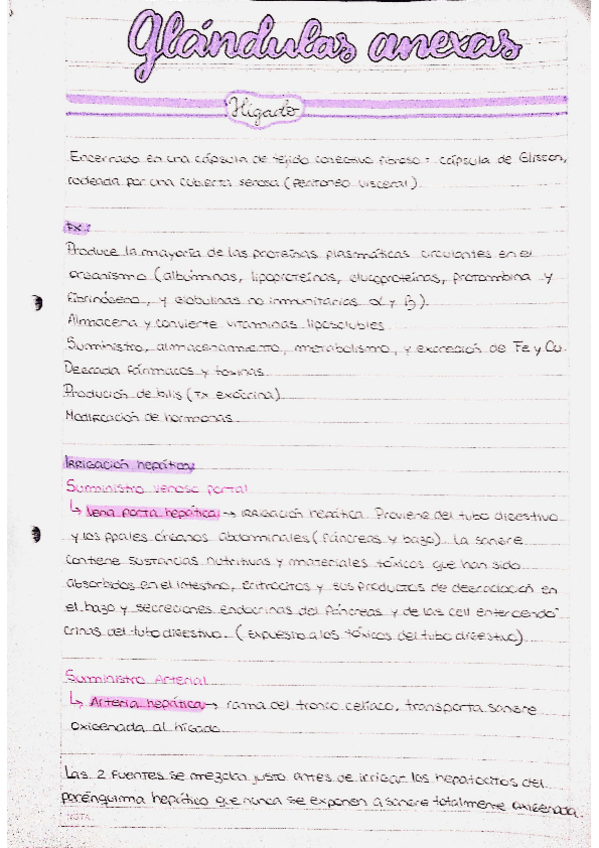 Glándulas anexas
Hígado
Encerrado en una cápsula de tejido conectivo fibroso: cápsula de Glisson,
rodeada por una cubierta serosa (peritoneo visceral)
FX:
Produce la mayoría de las proteínas plasmáticas circulantes en el
organismo (albúminas, lipoproteínas, glucoproteínas, protrombina y
fibrinógeno, y globulinas no inmunitarias α y β).
Almacena y convierte vitaminas liposolubles
Suministro, almacenamiento, metabolismo, y excreción de Fe y Cu.
Degrada fármacos y toxinas
Produción de bilis (fx exócrina)
Modificación de hormonas
Irrigación hepática:
Suministro venoso portal
↳ Vena porta hepática → irrigación hepática. Proviene del tubo digestivo
y los ppales órganos abdominales (páncreas y bazo). La sangre
contiene sustancias nutritivas y materiales tóxicos que han sido
absorbidos en el intestino, eritrocitos y sus productos de degradación en
el bazo y secreciones endocrinas del páncreas y de las cell enteroendo-
crinas del tubo digestivo. (Expuesto a los tóxicos del tubo digestivo)
Suministro Arterial
↳ Arteria hepática → rama del tronco celíaco, transporta sangre
oxigenada al hígado
Las 2 fuentes se mezclan justo antes de irrigar los hepatocitos del
parénquima hepático que nunca se exponen a sangre totalmente oxigenada.
NOTA